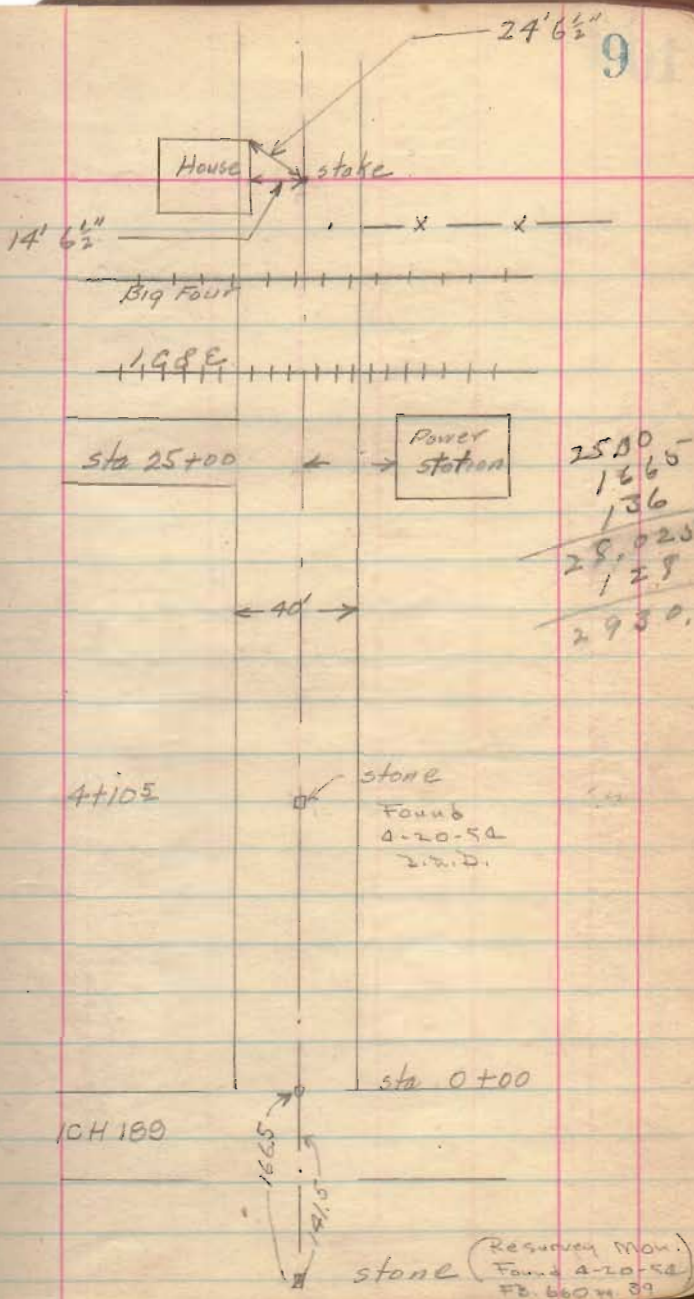 24' 6½"
9
House
stake
14' 6½"
x x
Big Four
sta 25+00
Power
station
2500
1665
136
128
40'
4+10⁵
stone
Found
4-20-54
sta 0+00
ICH 189
166.5
141.5
stone
(Resurvey Mon.
Found 4-20-54